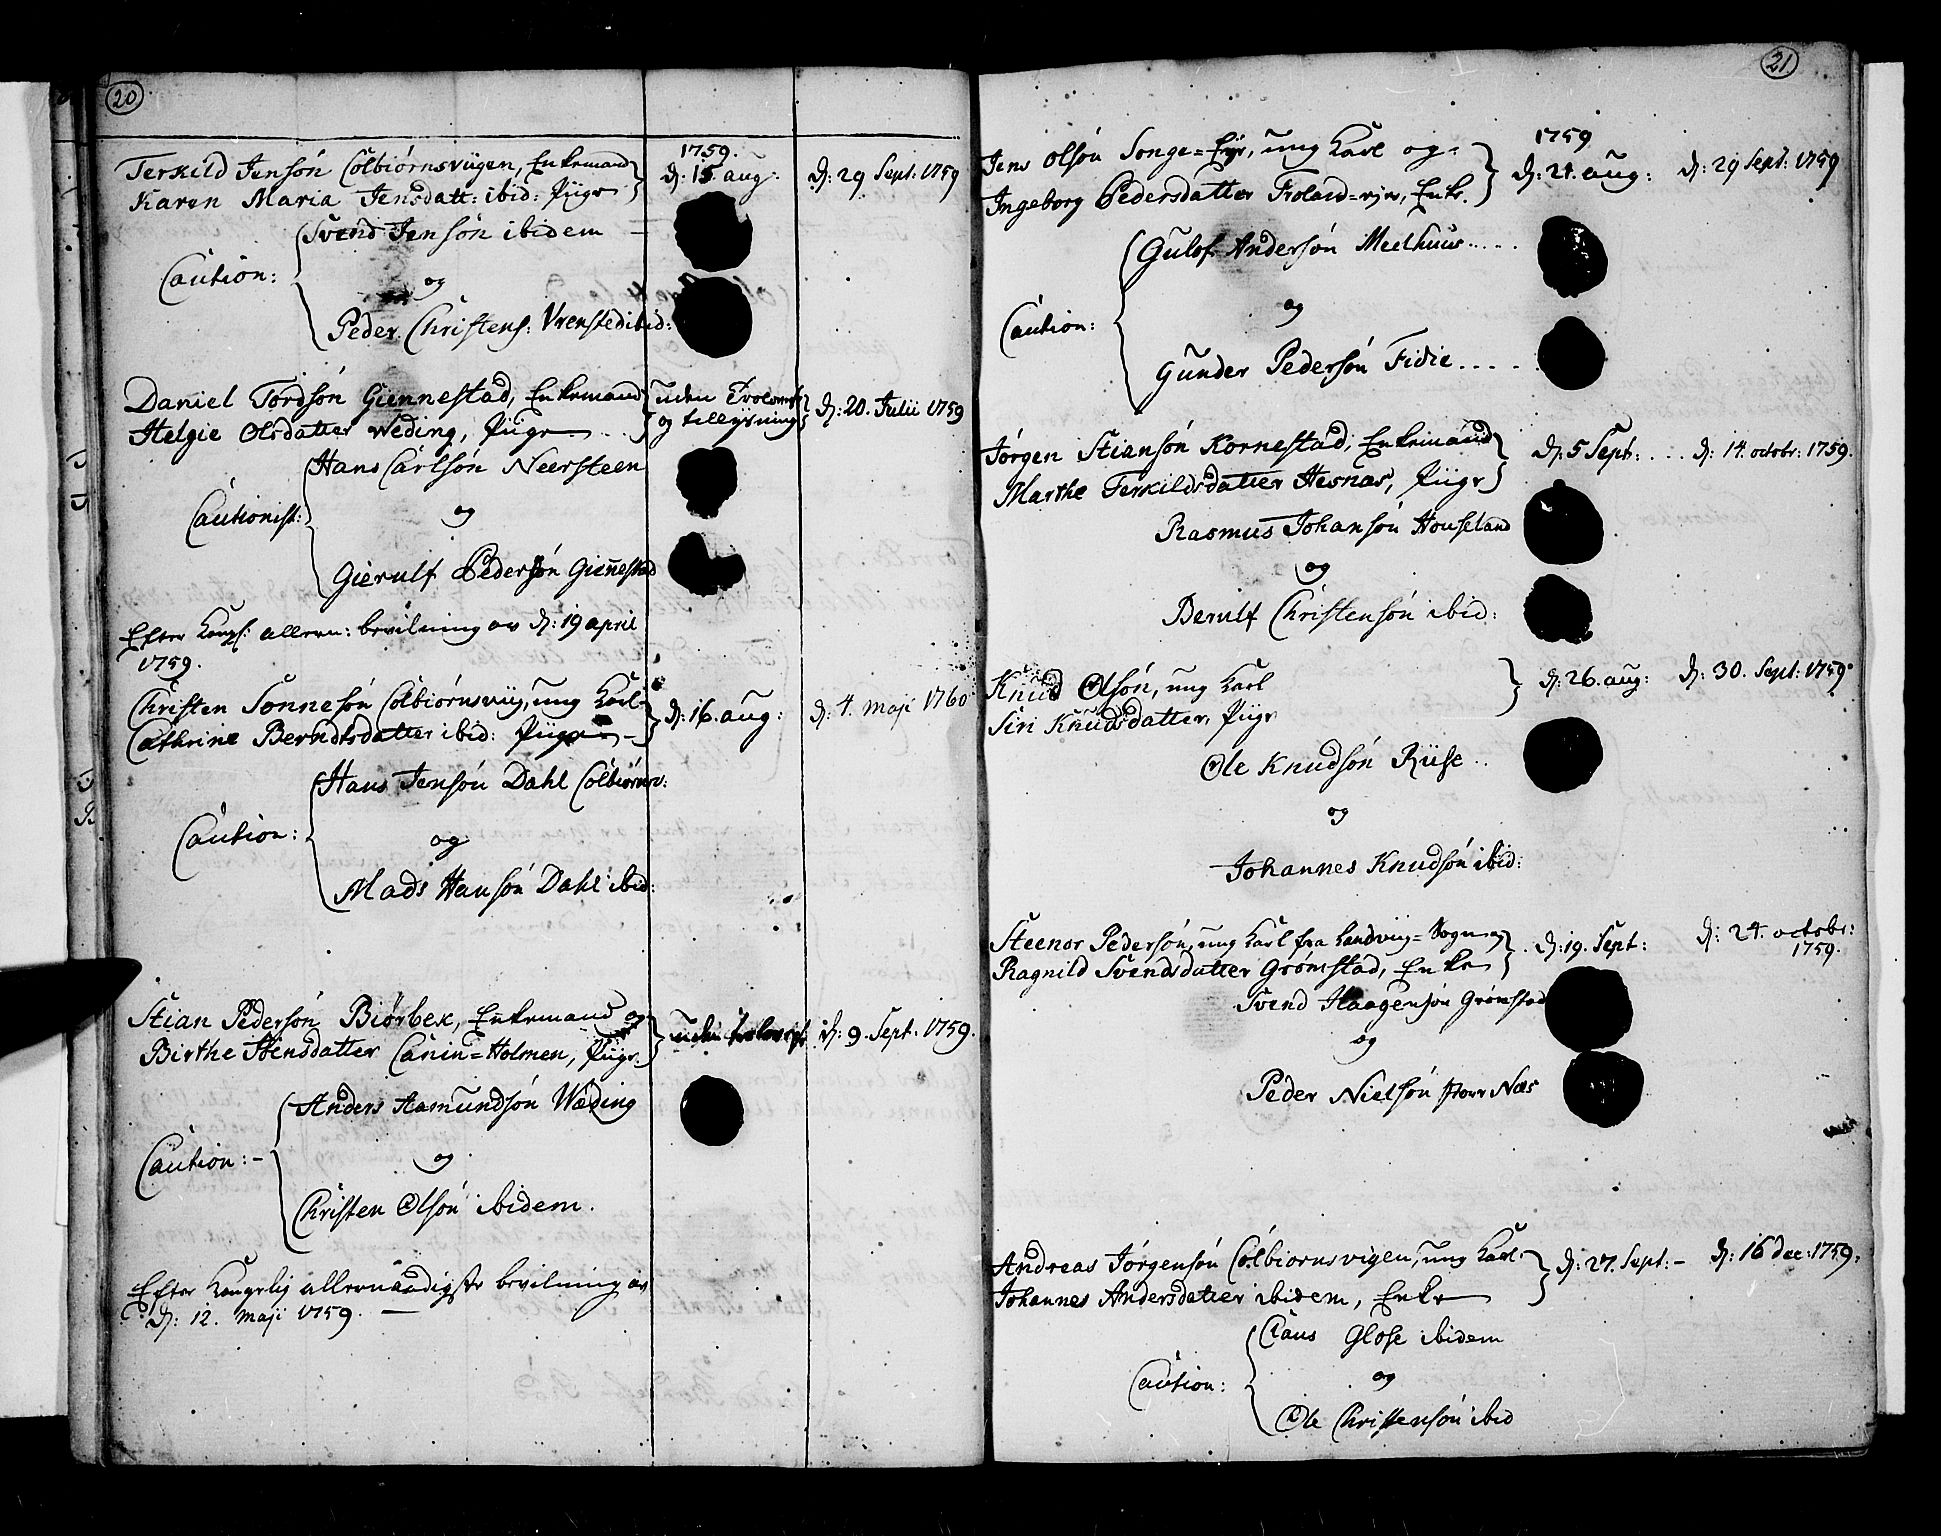 20
1759.
Terkild Jensón Colbiörnsviigen, Enkemand
Karen Maria Jensdatt: ibid: Piige
d: 15. aug: d: 29 Sept: 1759
Svend Jensón ibidem
Caution:
og
Peder Christens: Vrensted ibid:
Daniel Tordsón Giennestad, Enkemand
Helgie Olsdatter Weding, Piige
uden Trolovels
og tillysning
d: 20. Julii 1759
Hans Carlsón Neersteen
Cautionist:
og
Gierulf Pedersón Giennestad
Efter Kongl: allern: bevilning av d: 19 april
1759.
Christen Sonnesón Colbiörnsviig, ung Karl
Cathrine Berndtsdatter ibid: Piige
d: 16. aug: d: 4. Maji 1760
Hans Jensón Dahl Colbiörnsv:
Caution:
og
Mads Hansón Dahl ibid:
Stian Pedersón Biörbek, Enkemand og
Birthe Stensdatter Canin=Holmen, Piige
uden trolovels d: 9. Sept: 1759.
Anders Aamundsón Wæding
Caution:-
og
Christen Olsón ibidem.
Efter Kongelig allernaadigste bevilning av
d: 12. Maji 1759.
21
1759
Jens Olsón Songe=Eyr, ung Karl og
Ingeborg Pedersdatter Froland=, Enke.
d: 24. aug: d: 29 Sept: 1759
Gulof Andersón Meelhuus.....
Caution:
og
Gunder Pedersón Fidie.....
Jörgen Stiansón Kornestad, Enkemand
Marthe Terkildsdatter Hesnas, Piige
d: 5 Sept: .... d: 14. octobr: 1759.
Rasmus Johansón Houseland
og
Berulf Christensón ibid:
Knud Olsón, ung Karl
Siri Knudsdatter, Piige
d: 26. aug: d: 30. Sept: 1759
Ole Knudsón Riise ..
og
Johannes Knudsón ibid:
Steenor Pedersón, ung Karl fra Landviig=Sogn og
Ragnild Svendsdatter Grömstad, Enke
d: 19. Sept: d: 24. octobr:
1759.
Svend Haagensón Grömstad
og
Peder Nielsón Næs
Andreas Jörgensón Colbiornsvigen, ung Karl
Johannes Andersdatter ibidem, Enke
d: 27. Sept:- d: 16 dec: 1759.
Claus Glose ibidem
Caution:
og
Ole Christensón ibid